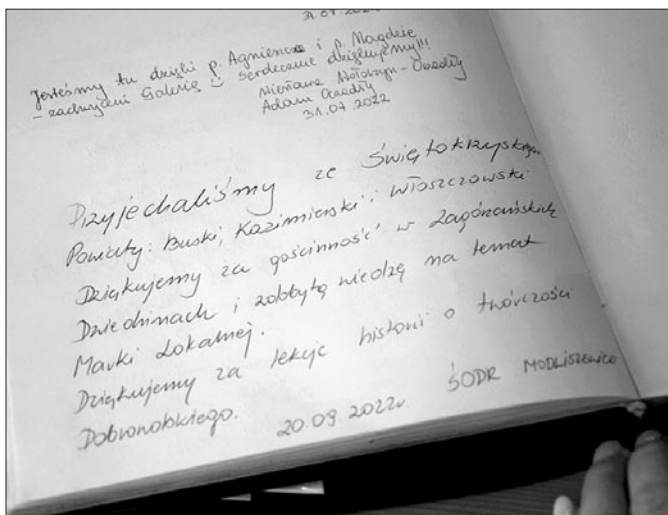 31.07.2022
Jesteśmy tu dzięki p. Agnieszce i p. Magdzie
– zachwyceni Galerią Serdecznie dziękujemy!!!
Adam
31.07.2022
Przyjechaliśmy ze Świętokrzyskiego
Powiaty: Buski, Kazimierski i Włoszczowski
Dziękujemy za gościnność w Zagórzańskich
Dziedzinach i zdobytą wiedzę na temat
Marki Lokalnej.
Dziękujemy za lekcje historii o twórczości
Dobronobskiego.
20.09.2022r. ŚODR MODLISZEWICE